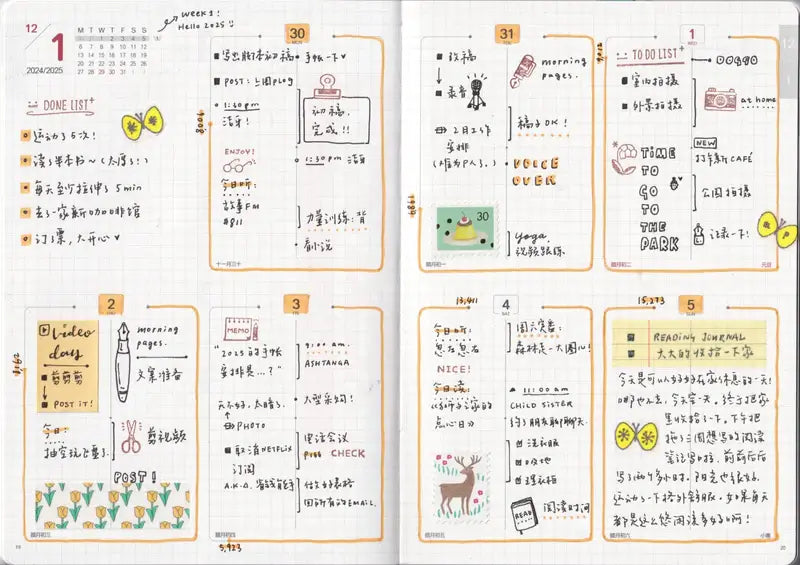 12
1
2024/2025
M T W T F S S
30 31 1 2 3 4 5
6 7 8 9 10 11 12
13 14 15 16 17 18 19
20 21 22 23 24 25 26
27 28 29 30 31
week 1!
Hello 2025!!
DONE LIST+
运动了5次!
读了半本书~(太厚了!)
每天至少拉伸了5min
去了一家新咖啡馆
订了票,大开心♥
30
MON
写出脚本初稿
手帐一下♥
POST: 上周plog
初稿,
完成!!
1:30pm
洁牙!
ENJOY!
1:30pm 洁牙
今日听:
故事FM
#811
力量训练:背
看小说
十一月三十
31
TUE
改稿
录音
morning
pages.
稿子OK!
2月工作
安排
VOICE
OVER
30
yoga.
视频跟练
腊月初一
1
WED
TO DO LIST+
室内拍摄
外景拍摄
at home
TIME
TO
GO
TO
THE
PARK
NEW
打卡新CAFÉ
公园拍摄
记录一下!
腊月初二
元旦
2
THU
video
day
剪剪剪
POST IT!
morning
pages.
文案准备
今日:
抽空玩上票了
剪视频
POST!
腊月初三
3
FRI
MEMO
"2025的手帐
安排是...?"
9:00 am.
ASHTANGA
天气好,太晴了.
PHOTO
大型采购!
取消NETFLIX
订阅
电话会议
CHECK
做好表格
回所有的EMAIL.
腊月初四
5,923
13,411
4
SAT
今日听:
忽左忽右
NICE!
周六竞赛:
森林走一大圈儿!
今日读:
《狮子之家的
点心日》
11:00 am
CHILD SISTER
约了朋友聊聊天.
洗衣服
吸地
READ
阅读时间
腊月初五
15,273
5
SUN
READING JOURNAL
大大的收拾一下家
今天是可以好好在家休息的一天!
里收拾了一下.下午把
拖了三周想写的阅读
笔记写了.前前后后
写了两个多小时.阳光也很好.
都是这么悠闲该多好啊!
腊月初六
小寒
19
20